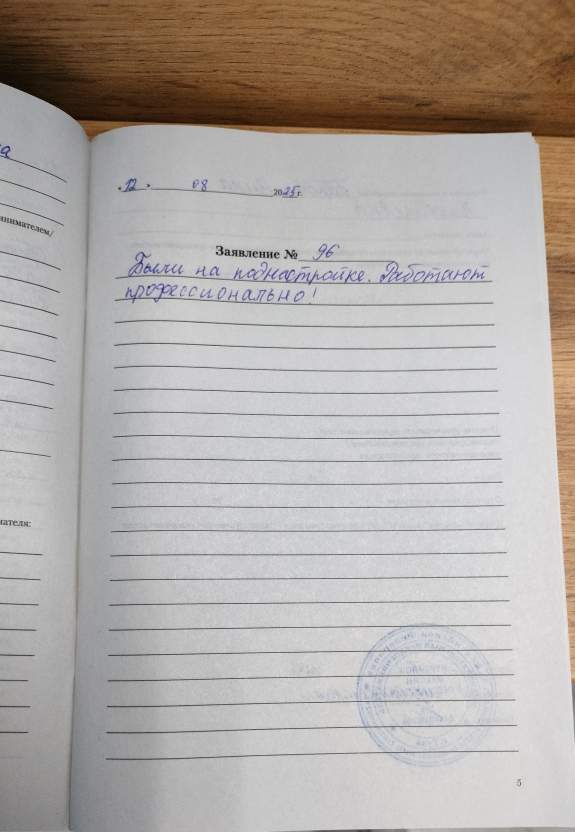 а
«12» 08 2025г.
нимателем/
Заявление № 96
Были на поднастройке. Работают
профессионально!
ателя:
5